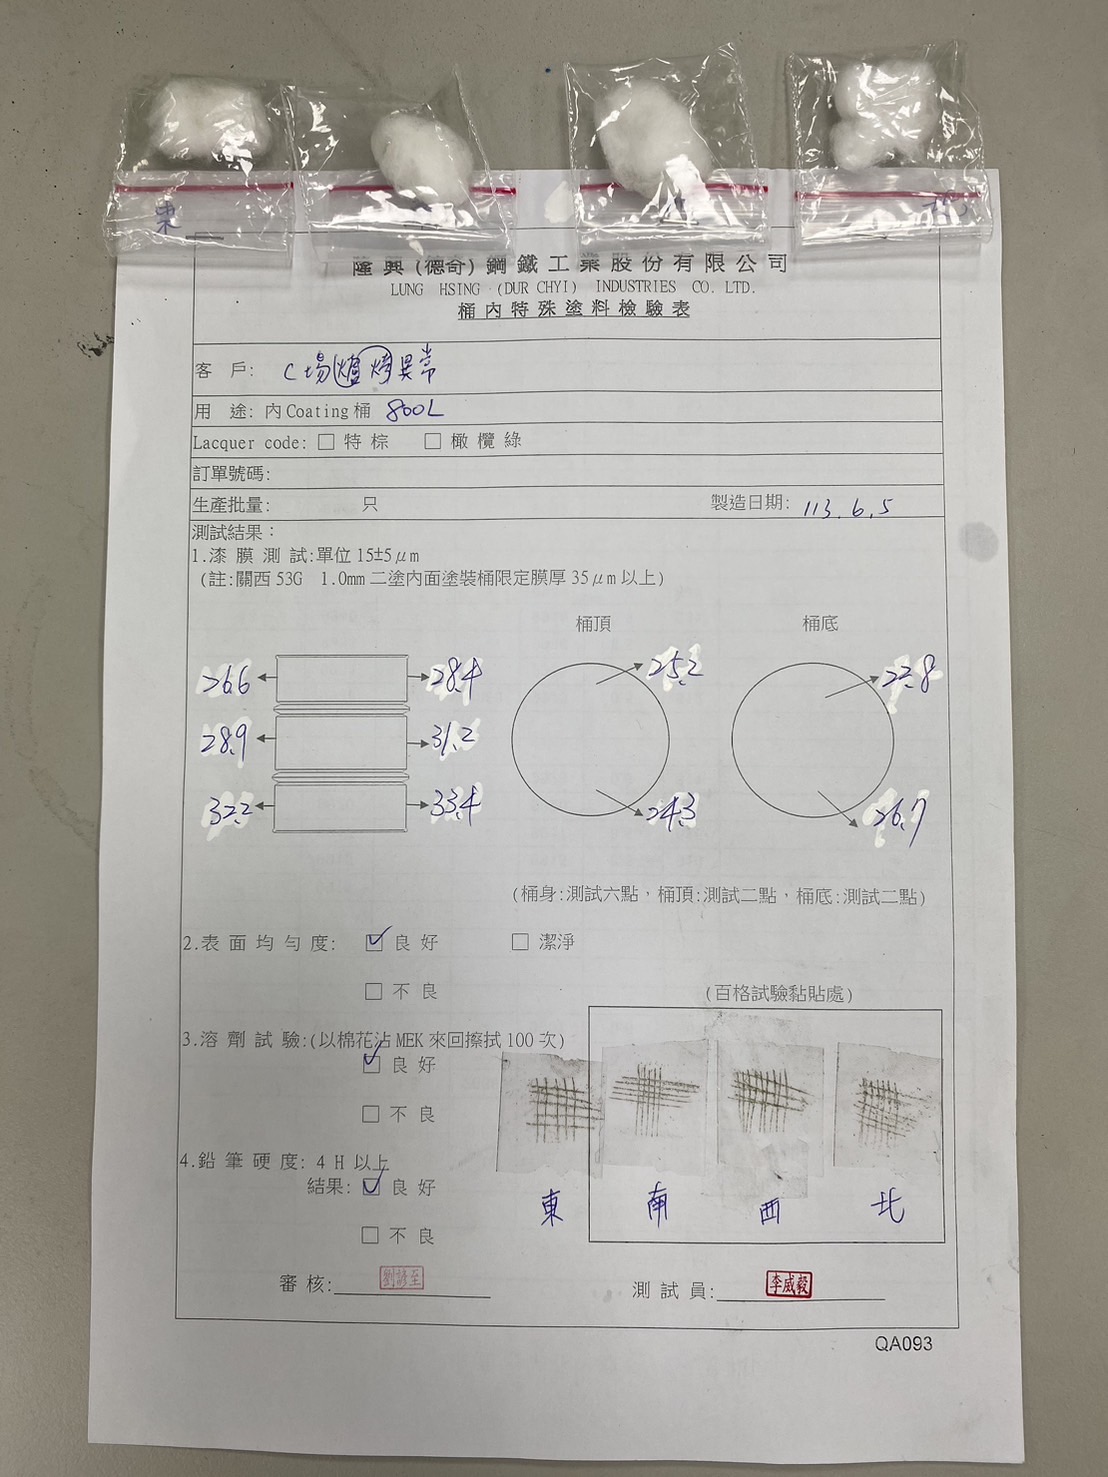 東
北
隆興(德奇)鋼鐵工業股份有限公司
LUNG HSING (DUR CHYI) INDUSTRIES CO. LTD.
桶內特殊塗料檢驗表
客 戶: C場爐烤異常
用 途: 內Coating桶 800L
Lacquer code: □ 特棕 □ 橄欖綠
訂單號碼:
生產批量: 只 製造日期: 113.6.5
測試結果：
1.漆膜測試:單位 15±5μm
(註:關西53G 1.0mm二塗內面塗裝桶限定膜厚35μm以上)
桶頂 桶底
26.6 28.4 25.2 22.8
28.9 31.2
32.2 33.4 24.3 26.7
(桶身:測試六點，桶頂:測試二點，桶底:測試二點)
2.表面均勻度: ☑ 良好 □ 潔淨
□ 不良
(百格試驗黏貼處)
3.溶劑試驗:(以棉花沾MEK來回擦拭100次)
☑ 良好
□ 不良
4.鉛筆硬度: 4H以上
結果: ☑ 良好
東 南 西 北
□ 不良
審核: 劉諺至 測試員: 李威毅
QA093